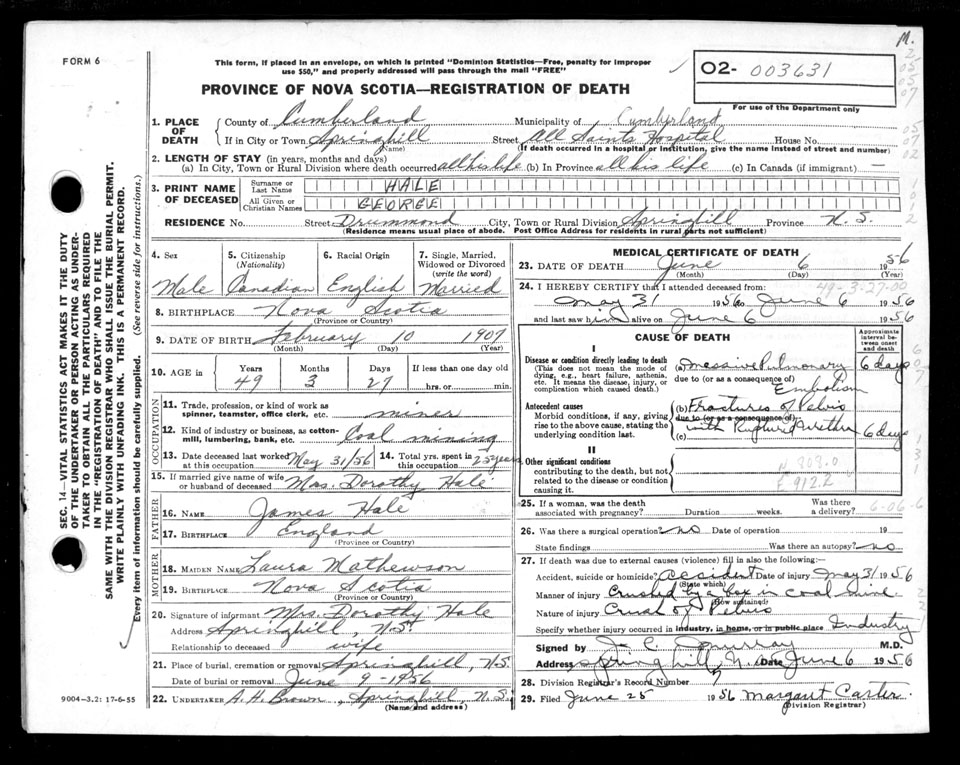 M.
FORM 6
This form, if placed in an envelope, on which is printed "Dominion Statistics—Free, penalty for improper
use $50," and properly addressed will pass through the mail "FREE"
O2- 003631
For use of the Department only
PROVINCE OF NOVA SCOTIA—REGISTRATION OF DEATH
1. PLACE OF DEATH County of Cumberland Municipality of Cumberland
If in City or Town Springhill Street All Saints Hospital House No.
(Name) (If death occurred in a hospital or institution, give the name instead of street and number)
2. LENGTH OF STAY (in years, months and days)
(a) In City, Town or Rural Division where death occurred all his life (b) In Province all his life (c) In Canada (if immigrant) —
3. PRINT NAME OF DECEASED Surname or Last Name HALE
All Given or Christian Names GEORGE
RESIDENCE No. Street Drummond City, Town or Rural Division Springhill Province N. S.
(Residence means usual place of abode. Post Office Address for residents in rural parts not sufficient)
4. Sex Male
5. Citizenship (Nationality) Canadian
6. Racial Origin English
7. Single, Married, Widowed or Divorced (write the word) Married
8. BIRTHPLACE Nova Scotia
(Province or Country)
9. DATE OF BIRTH February 10 1907
(Month) (Day) (Year)
10. AGE Years 49 Months 3 Days 27 If less than one day old hrs. or min.
OCCUPATION
11. Trade, profession, or kind of work as spinner, teamster, office clerk, etc. miner
12. Kind of industry or business, as cotton-mill, lumbering, bank, etc. Coal mining
13. Date deceased last worked at this occupation May 31/56 14. Total yrs. spent in this occupation 25 years
15. If married give name of wife or husband of deceased Mrs. Dorothy Hale
FATHER
16. NAME James Hale
17. BIRTHPLACE England
(Province or Country)
MOTHER
18. MAIDEN NAME Laura Mathewson
19. BIRTHPLACE Nova Scotia
(Province or Country)
20. Signature of informant Mrs. Dorothy Hale
Address Springhill, N.S.
Relationship to deceased wife
21. Place of burial, cremation or removal Springhill, N.S.
Date of burial or removal June 9 - 1956
22. UNDERTAKER A. H. Brown, Springhill, N.S.
(Name and address)
MEDICAL CERTIFICATE OF DEATH
23. DATE OF DEATH June 6 1956
(Month) (Day) (Year)
49-3-27-00
24. I HEREBY CERTIFY that I attended deceased from:
May 31 1956 to June 6 1956
and last saw him alive on June 6 1956
CAUSE OF DEATH
Approximate interval between onset and death
I
Disease or condition directly leading to death
(This does not mean the mode of dying, e.g., heart failure, asthenia, etc. It means the disease, injury, or complication which caused death.)
(a) massive Pulmonary 6 days
due to (or as a consequence of) Embolism
Antecedent causes
Morbid conditions, if any, giving rise to the above cause, stating the underlying condition last.
(b) Fractures of Pelvis
due to (or as a consequence of)
(c) with Ruptured Urethra 6 days
II
Other significant conditions
contributing to the death, but not related to the disease or condition causing it.
N 808.0
E 912.2
25. If a woman, was the death associated with pregnancy? Duration weeks. Was there a delivery?
6-06-6
26. Was there a surgical operation? no Date of operation 19
State findings Was there an autopsy? no
27. If death was due to external causes (violence) fill in also the following:—
Accident, suicide or homicide? accident Date of injury May 31 1956
(State which)
Manner of injury Crushed by a box in coal mine.
(How sustained)
Nature of injury Crush of Pelvis
Specify whether injury occurred in industry, in home, or in public place Industry
Signed by J. C. Murray M.D.
Address Springhill, N.S. Date June 6 1956
28. Division Registrar's Record Number
29. Filed June 25 1956 Margaret Carter
(Division Registrar)
SEC. 14—VITAL STATISTICS ACT MAKES IT THE DUTY
OF THE UNDERTAKER OR PERSON ACTING AS UNDER-
TAKER TO OBTAIN ALL THE PARTICULARS REQUIRED
IN THE "REGISTRATION OF DEATH" AND TO FILE THE
SAME WITH THE DIVISION REGISTRAR WHO SHALL ISSUE THE BURIAL PERMIT.
WRITE PLAINLY WITH UNFADING INK. THIS IS A PERMANENT RECORD.
Every item of information should be carefully supplied. (See reverse side for instructions.)
9004—3.2: 17-6-55